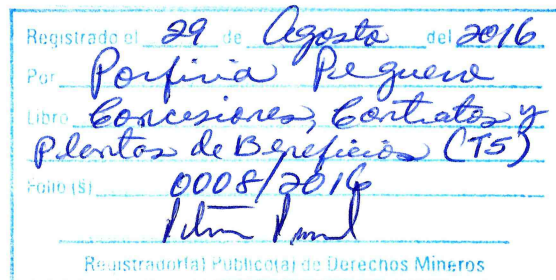 Registrado el 29 de Agosto del 2016
Por Porfiria Peguero
Libro Concesiones, Contratos y
Plantas de Beneficios (T5)
Folio (s) 0008/2016
Registrador(a) Publico(a) de Derechos Mineros